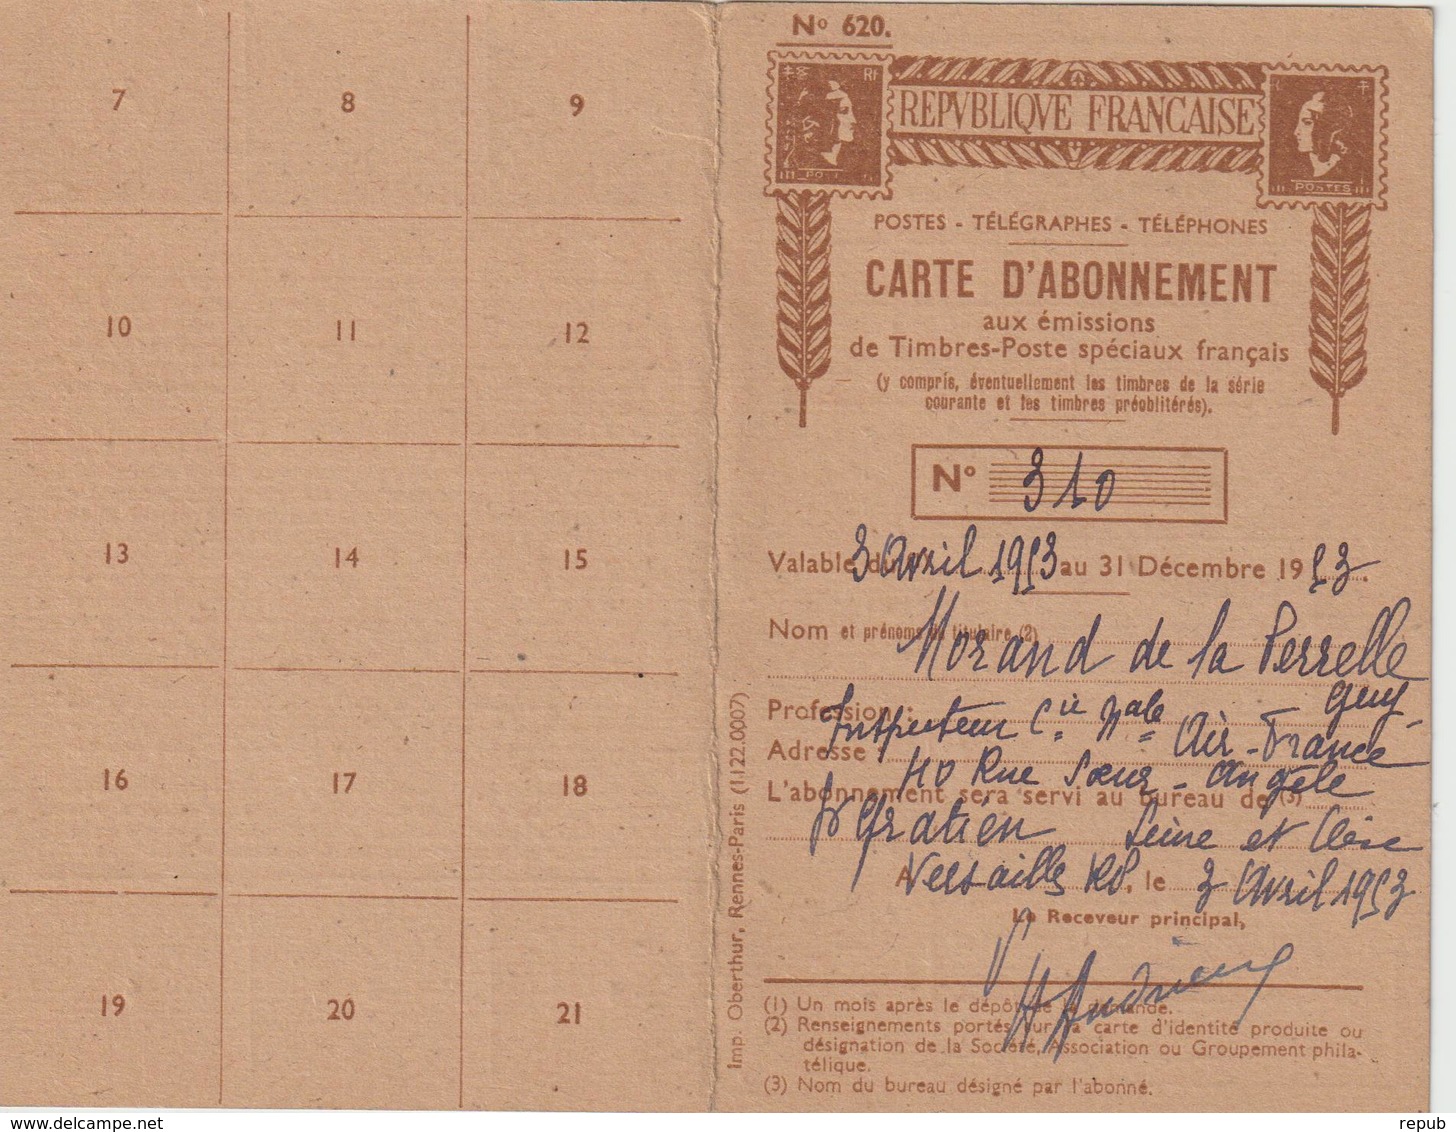 7 8 9
10 11 12
13 14 15
16 17 18
19 20 21
Imp. Oberthur, Rennes-Paris (1.122.0007)
Nº 620.
RF
POSTES
REPVBLIQVE FRANCAISE
POSTES - TÉLÉGRAPHES - TÉLÉPHONES
CARTE D'ABONNEMENT
aux émissions
de Timbres-Poste spéciaux français
(y compris, éventuellement les timbres de la série
courante et les timbres préoblitérés).
Nº 310
Valable du 3 Avril 1953 au 31 Décembre 1953.
Nom et prénoms du titulaire (2)
Morand de la Perrelle
Guy
Profession :
Inspecteur Cie Nale Air-France
Adresse :
40 Rue Sœur-Angèle
L'abonnement sera servi au bureau de (3)
St Gratien Seine et Oise
A Versailles RP, le 3 Avril 1953
Le Receveur principal,
(1) Un mois après le dépôt de la demande.
(2) Renseignements portés sur la carte d'identité produite ou
désignation de la Société, Association ou Groupement phila-
télique.
(3) Nom du bureau désigné par l'abonné.
www.delcampe.net
repub